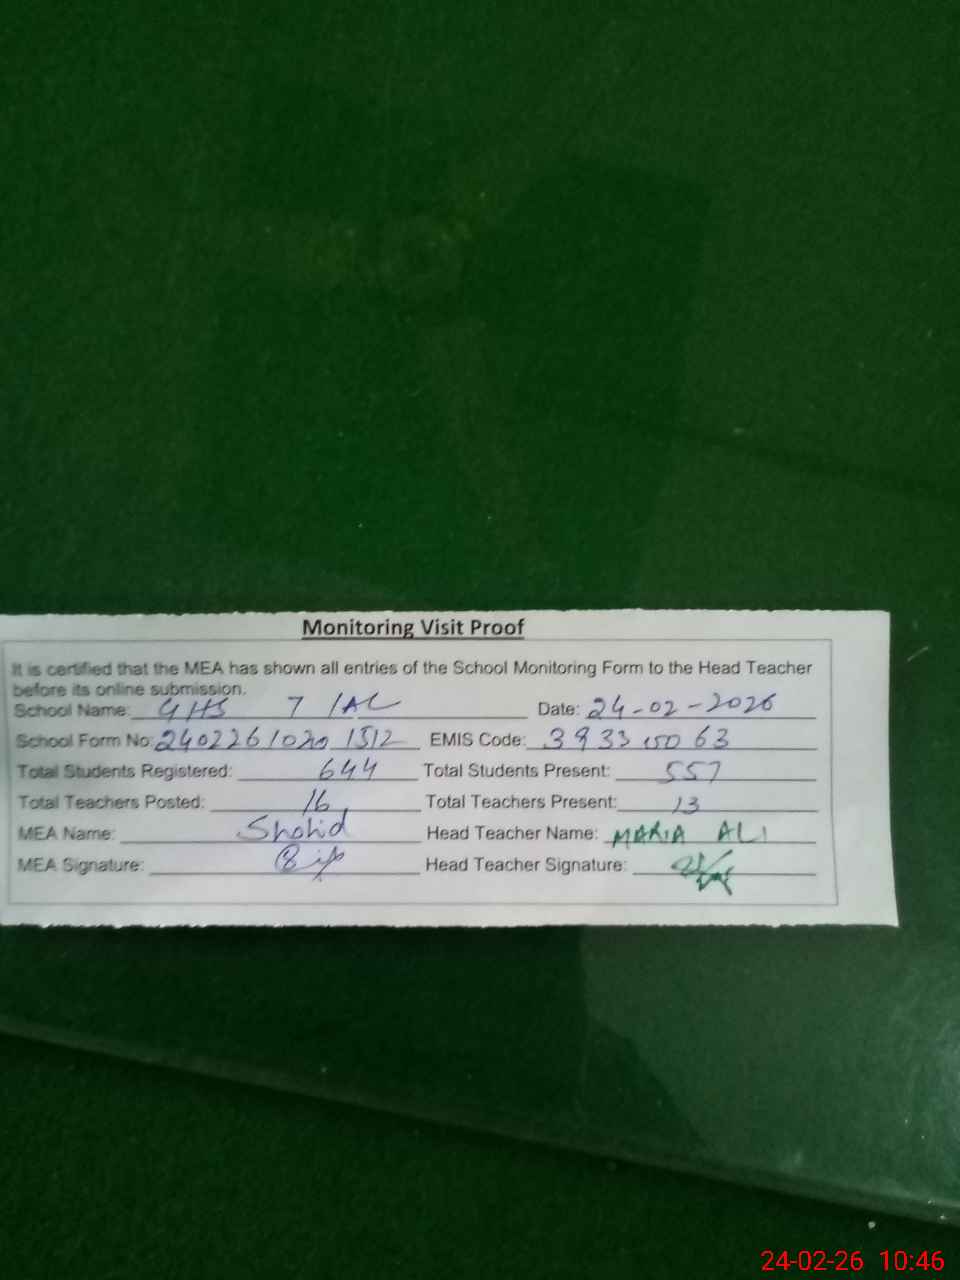 Monitoring Visit Proof
It is certified that the MEA has shown all entries of the School Monitoring Form to the Head Teacher
before its online submission.
School Name: GHS 7 1AL Date: 24-02-2026
School Form No: 2402261020 1512 EMIS Code: 393315063
Total Students Registered: 644 Total Students Present: 557
Total Teachers Posted: 16 Total Teachers Present: 13
MEA Name: Shahid Head Teacher Name: MARIA ALI
MEA Signature: Head Teacher Signature:
24-02-26 10:46